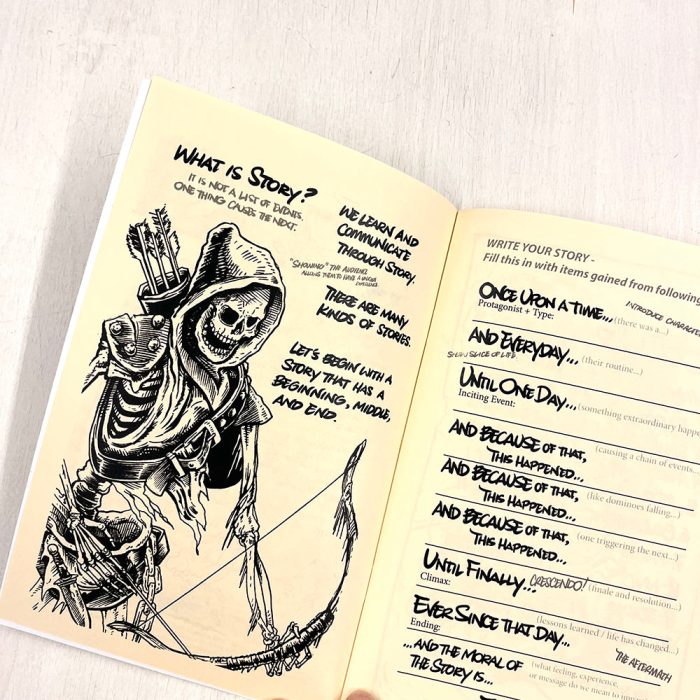 WHAT IS STORY?
IT IS NOT A LIST OF EVENTS.
ONE THING CAUSES THE NEXT.
WE LEARN AND
COMMUNICATE
THROUGH STORY.
"SHOWING" THE AUDIENCE
ALLOWS THEM TO HAVE A UNIQUE
EXPERIENCE
THERE ARE MANY
KINDS OF STORIES.
LET'S BEGIN WITH A
STORY THAT HAS A
BEGINNING, MIDDLE,
AND END.
WRITE YOUR STORY -
Fill this in with items gained from following
ONCE UPON A TIME... (there was a...) INTRODUCE CHARACTER
Protagonist + Type:
AND EVERYDAY... (their routine...)
SHOW SLICE OF LIFE
UNTIL ONE DAY... (something extraordinary happe
Inciting Event:
AND BECAUSE OF THAT, (causing a chain of events...
THIS HAPPENED...
AND BECAUSE OF THAT, (like dominoes falling...)
THIS HAPPENED...
AND BECAUSE OF THAT, (one triggering the next...)
THIS HAPPENED...
UNTIL FINALLY... CRESCENDO! (finale and resolution...)
Climax:
EVER SINCE THAT DAY... (lessons learned / life has changed...)
Ending:
THE AFTERMATH
...AND THE MORAL OF (what feeling, experience,
THE STORY IS... or message do we mean to